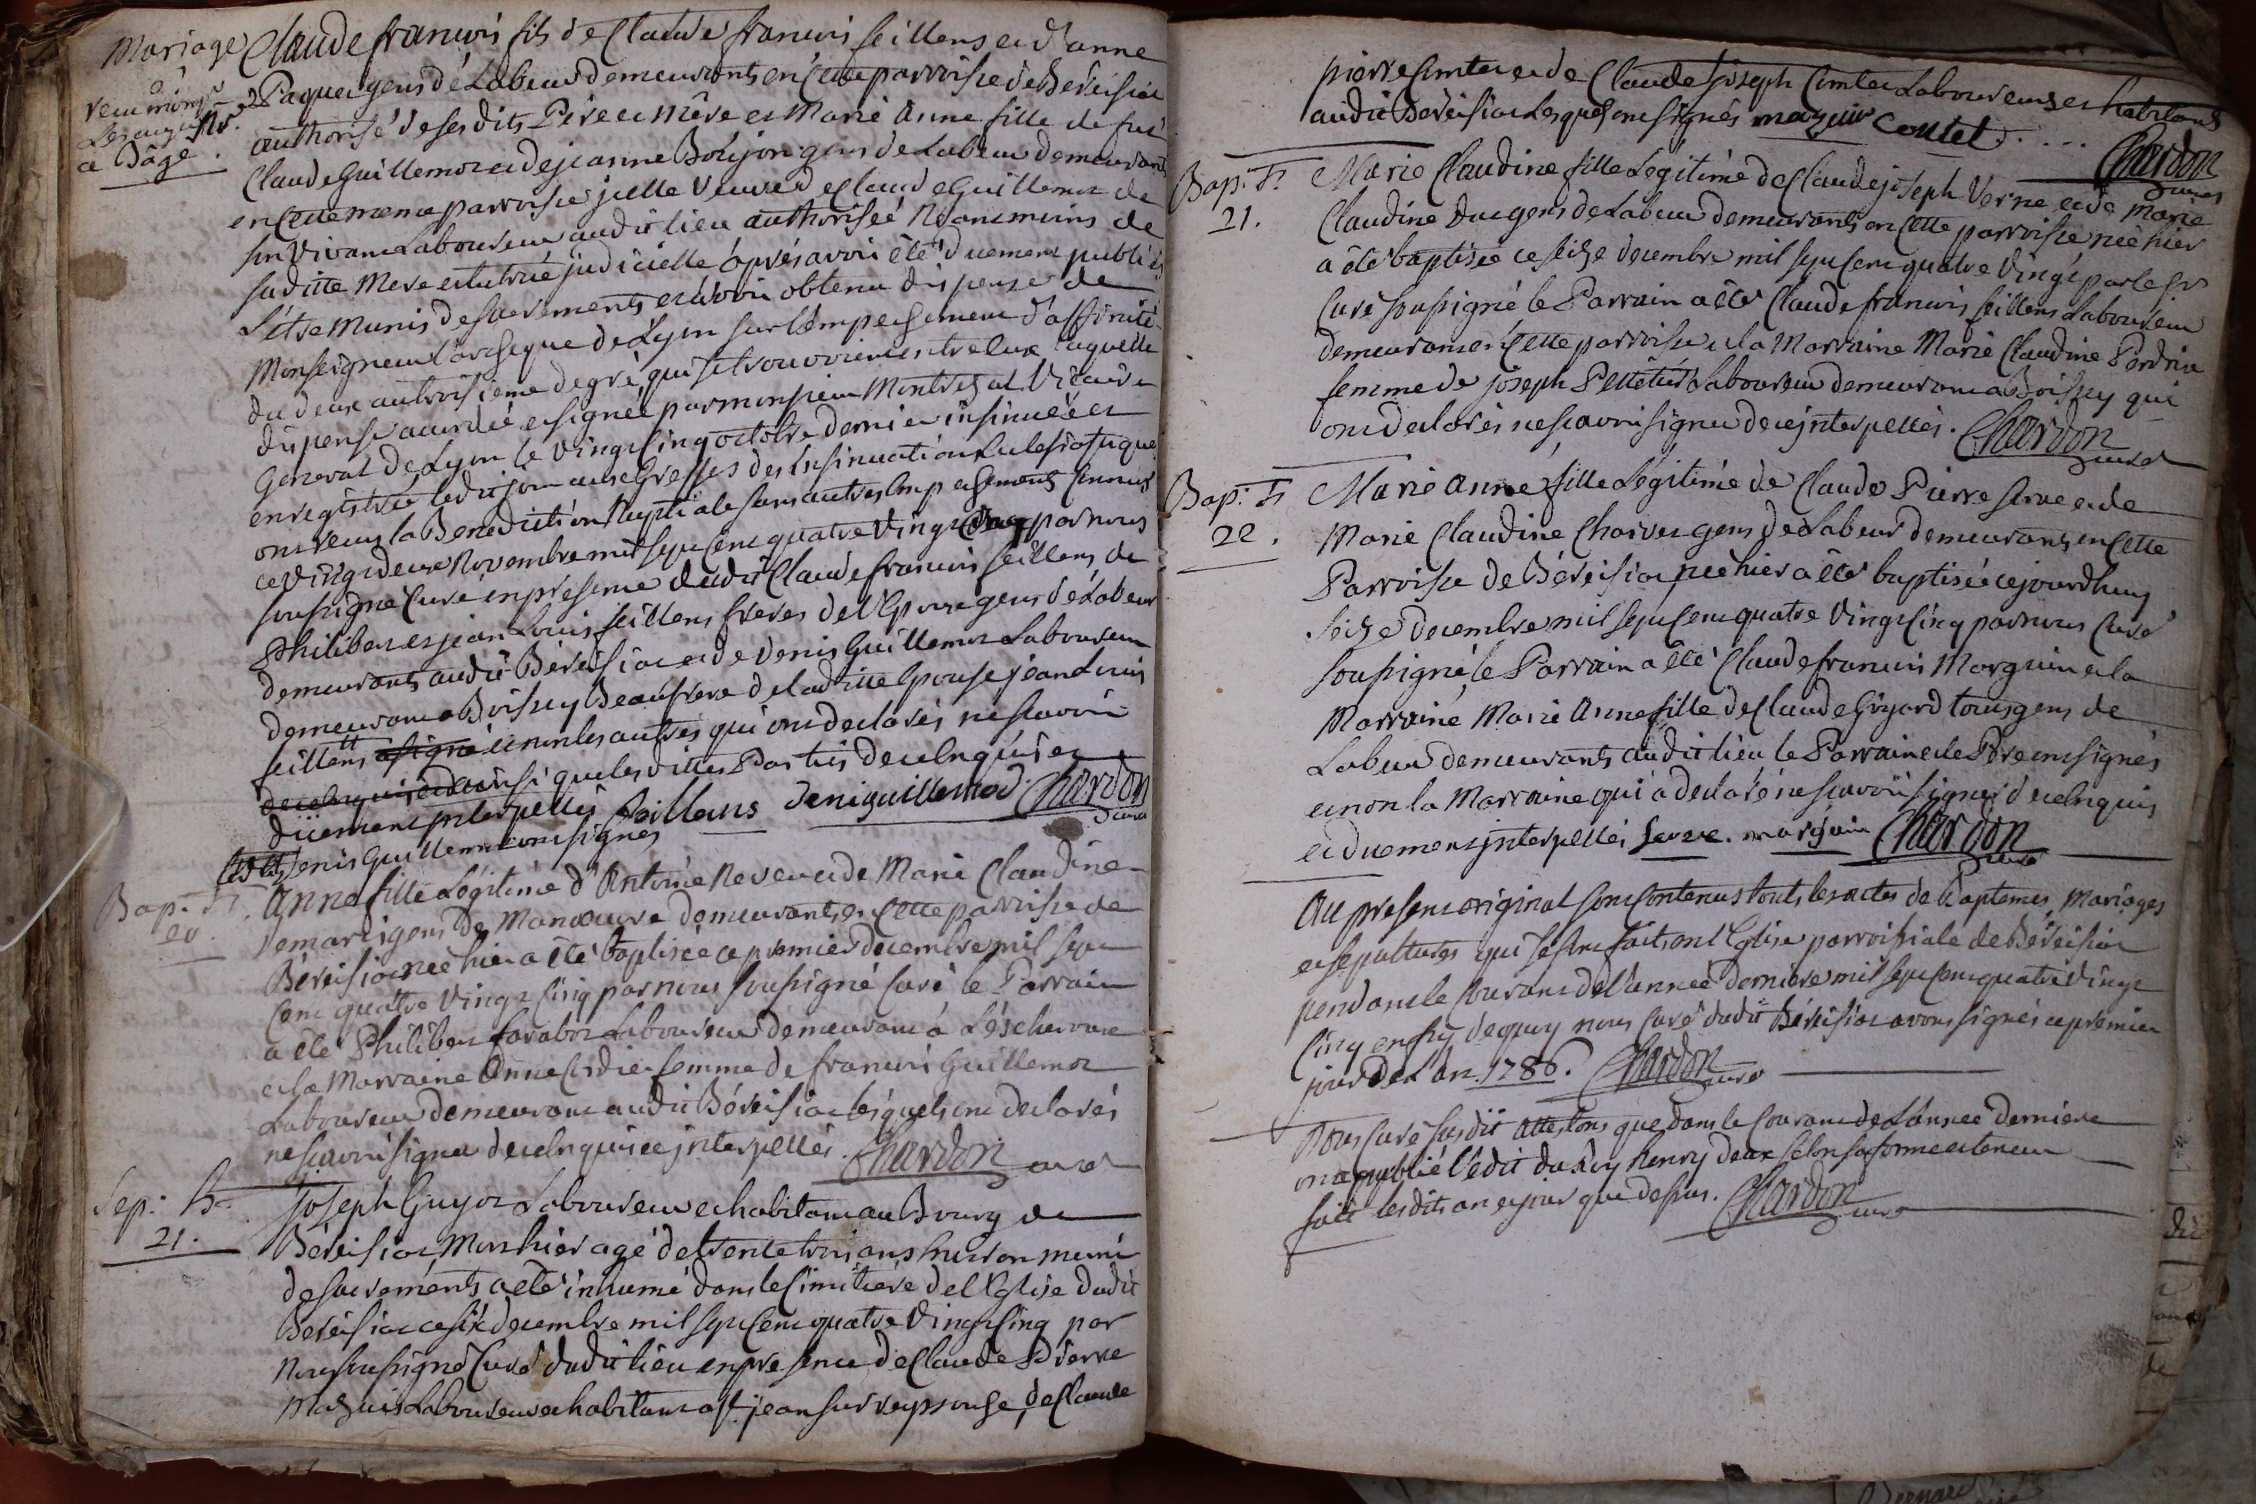 Mariage Claude francois fils de Claude francois feillens et d'anne
Paquet gens de Labeur demeurants en Cette parroisse de Béreisiat
authorisé de ses dits Pere et Mère et Marie Anne fille de feu
Claude Guillemot et de jeanne Boujon gens de Labeur demeurants
en Cette meme parroisse jcelle Veuve de Claude Guillemot de
son Vivant Laboureur audit lieu authorisée Neanmoins de
saditte Mere et tutrice judicielle après avoir été duement publiés
s'être Munis de sacrements et avoir obtenu dispense de
Monseigneur l'archeque de Lyon sur l'empechement d'affinité
du deux au troisieme degré, qui se trouvoirent entre eux laquelle
dispense accordée et signée par monsieur Vicaire
General de Lyon le Vingt Cinq octobre dernier insinuée et
enregistrée ledit jour au Greffes des Insinuations Ecclesiastique
ont receu la Benediction Nuptiale sans autres Empechements Connus
ce Vingt deux Novembre mil sept Cent quatre Vingt Cinq par nous
soussigné Curé en presence dudit Claude francois feillens, de
Philibert et jean Louis feillens freres de l'Epoux gens de Labeur
demeurants audit Béreisiat et de Denis Guillemot Laboureur
demeurant a Boissey Beaufrere de laditte Epouse jean Louis
feillens a signé et non les autres qui ont declarés ne scavoir
de ce Enquis et ainsi que les dittes Parties de ce Enquis et
düement jnterpellés feillens deni guillemod Chardon
Curé
Denis Guillemot ont signés
a Bâgé.
Bap. F.
20.
Anne fille Légitime d'Antoine Neveu et de Marie Claudine
gens de Manoeuvre demeurants en Cette parroisse de
Béreisiat née hier a été baptisée ce premier decembre mil sept
Cent quatre Vingt Cinq par nous soussigné Curé le Parrain
a été Philibert Laboureur demeurant à Léscheroux
et la Marraine Anne femme de francois Guillemot
Laboureur demeurant audit Béreisiat lesquels ont declarés
ne scavoir signer de ce Enquis et jnterpellés. Chardon curé
Sep: h.
21.
joseph Guyot Laboureur et habitant au Bourg de
Béreisiat Mort hier agé de trente trois ans environ muni
de sacrements a été inhumé dans le Cimetiere de l'Eglise dudit
Béreisiat ce six decembre mil sept Cent quatre Vingt Cinq par
Nous soussigné Curé dudit lieu en presence de Claude Pierre
Mazuir Laboureur et habitant a St. jean sur reyssouse, de Claude
pierre Contet et de Claude joseph Contet Laboureurs et habitants
audit Béreisiat Lesquels ont signés mazuir Contet.... Chardon
Curé
Bap: F.
21.
Marie Claudine fille Légitime de Claude joseph Verne et de Marie
Claudine Duc gens de Labeur demeurants en Cette parroisse née hier
a été baptisée ce seize decembre mil sept Cent quatre Vingt par le Sr
Curé soussigné le Parrain a été Claude francois feillens Laboureur
demeurant en Cette parroisse et la Marraine Marie Claudine Perdrix
femme de joseph Pelletier Laboureur demeurant a Boissey qui
ont declarés ne scavoir signer de ce jnterpellés. Chardon
curé
Bap: F.
22.
Marie Anne fille Légitime de Claude Pierre Serve et de
Marie Claudine Charvet gens de Labeur demeurants en Cette
Parroisse de Béreisiat née hier a été baptisée ce jourd'huy
seize decembre mil sept Cent quatre Vingt Cinq par nous Curé
soussigné, le Parrain a été Claude francois Morguin et la
Marraine Marie Anne fille de Claude Guyard tous gens de
Labeur demeurants audit lieu le Parrain et le Pere ont signés
et non la Marraine qui a declaré ne scavoir signer de ce Enquis
et duement jnterpellés Serve. marguin Chardon
curé
Au present original sont Contenus touts les actes de Baptemes, Mariages
et sepultures qui se sont faits en l'Eglise parroissiale de Béreisiat
pendant le Courant de l'année derniere mil sept Cent quatre Vingt
Cinq en foy de quoy nous Curé dudit Béreisiat avons signés ce premier
jour de L'An. 1786. Chardon curé
Nous Curé susdit attestons que dans le Courant de L'année derniere
on a publié l'édit du Roy henry deux selon sa forme et teneur
fait lesdits an et jour que dessus. Chardon curé